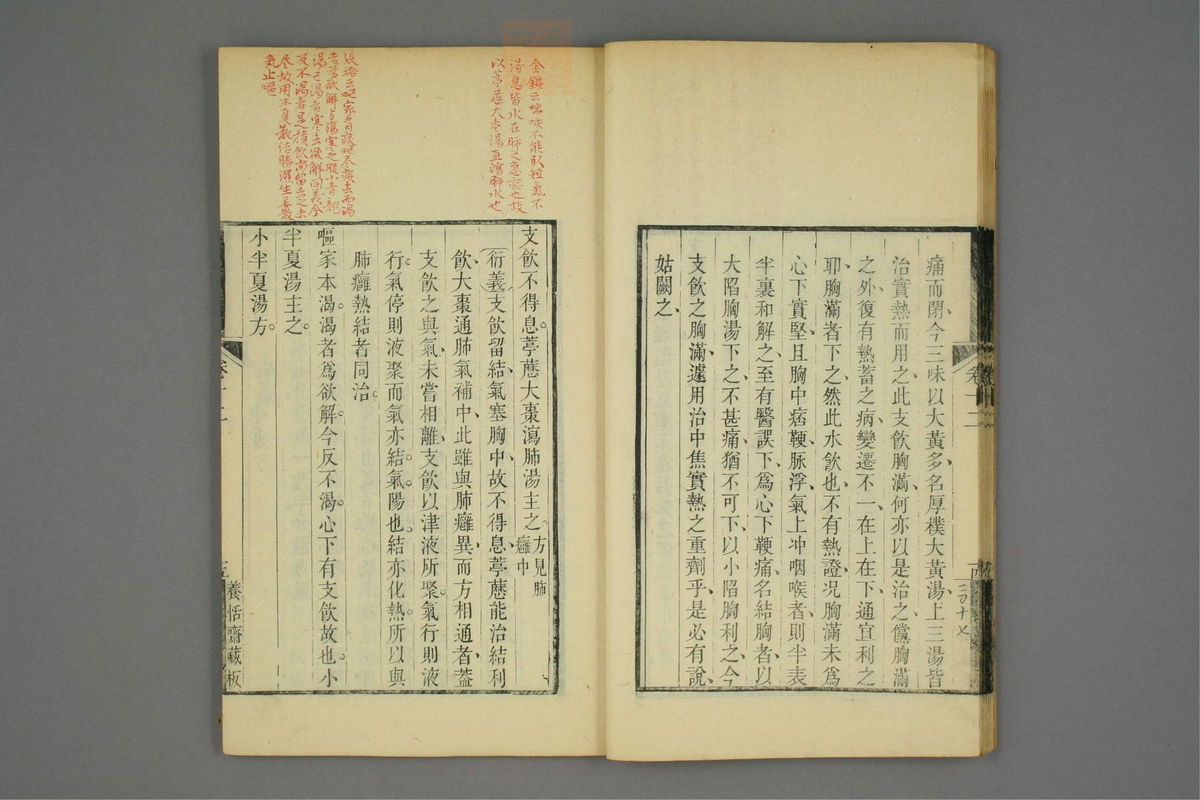 痛而閉、今三味以大黃多、名厚樸大黃湯、上三湯皆
治實熱而用之、此支飲胸滿、何亦以是治之、儻胸滿
之外、復有熱蓄之病、變遷不一、在上在下、通宜利之
耶、胸滿者下之、然此水飲也、不有熱證、况胸滿未爲
心下實堅、且胸中痞鞕、脉浮氣上冲咽喉者、則半表
半裏和解之、至有醫誤下、爲心下鞕痛、名結胸者、以
大陷胸湯下之、不甚痛、猶不可下、以小陷胸利之、今
支飲之胸滿、遽用治中焦實熱之重劑乎、是必有說、
姑闕之、
卷十二
二百十七
金鑑云喘咳不能臥短氣不
得息皆水在肺之急症也故
以葶藶大棗湯直瀉肺水也
支飲不得息。葶藶大棗瀉肺湯主之。方見肺癰中
衍義支飲留結、氣塞胸中、故不得息、葶藶能治結利
飲、大棗通肺氣補中、此雖與肺癰異、而方相通者、蓋
支飲之與氣、未嘗相離、支飲以津液所聚。氣行則液
行。氣停則液聚而氣亦結。氣陽也。結亦化熱。所以與
肺癰熱結者同治。
張璐云嘔家
嘔家本渴。渴者爲欲解。今反不渴。心下有支飲故也。小
半夏湯主之。
小半夏湯方。
氣止嘔
卷十二
養恬齋藏板